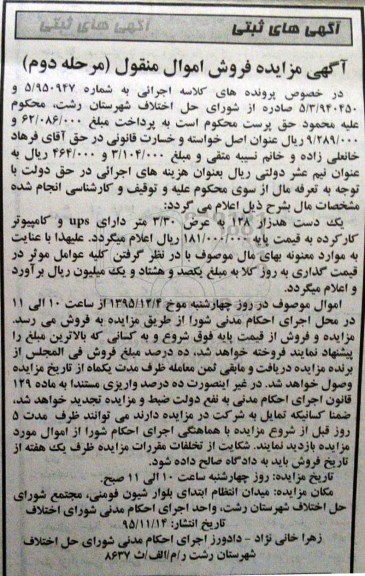 آگهی های ثبتی
آگهی مزایده فروش اموال منقول (مرحله دوم)
در خصوص پرونده های کلاسه اجرائی به شماره ۵/۹۵۰۹۴۷ و
۵/۳/۹۴۰۲۵۰ صادره از شورای حل اختلاف شهرستان رشت، محکوم
علیه محمود حق پرست محکوم است به پرداخت مبلغ ۶۲/۰۸۶/۰۰۰ و
۹/۲۸۹/۰۰۰ ریال عنوان اصل خواسته و خسارت قانونی در حق آقای فرهاد
خانعلی زاده و خانم نسیبه متقی و مبلغ ۳/۱۰۴/۰۰۰ و ۴۶۴/۰۰۰ ریال به
عنوان نیم عشر دولتی ریال بعنوان هزینه های اجرائی در حق دولت با
توجه به تعرفه مال از سوی محکوم علیه و توقیف و کارشناسی انجام شده
مشخصات مال بشرح ذیل اعلام می گردد:
یک دست هدزار ۱۲۸ به عرض ۳/۳۰ متر دارای ups و کامپیوتر
کارکرده به قیمت پایه ۱۸۱/۰۰۰/۰۰۰ ریال اعلام میگردد. علیهذا با عنایت
به موارد معنونه بهای مال موصوف با در نظر گرفتن کلیه عوامل موثر در
قیمت گذاری به روز کلا به مبلغ یکصد و هشتاد و یک میلیون ریال برآورد
و اعلام میگردد.
اموال موصوف در روز چهارشنبه موخ ۱۳۹۵/۱۲/۴ از ساعت ۱۰ الی ۱۱
در محل اجرای احکام مدنی شورا از طریق مزایده به فروش می رسد.
مزایده و فروش از قیمت پایه فوق شروع و به کسانی که بالاترین مبلغ را
پیشنهاد نمایند فروخته خواهد شد، ده درصد مبلغ فروش فی المجلس از
برنده مزایده دریافت و مابقی ثمن معامله ظرف مدت یکماه از تاریخ مزایده
وصول خواهد شد. در غیر اینصورت ده درصد واریزی مستندا به ماده ۱۲۹
قانون اجرای احکام مدنی به نفع دولت ضبط و مزایده تجدید خواهد شد،
ضمنا کسانیکه تمایل به شرکت در مزایده دارند می توانند ظرف مدت ۵
روز قبل از شروع مزایده با هماهنگی اجرای احکام شورا از اموال مورد
مزایده بازدید نمایند. شکایت از تخلفات مقررات مزایده ظرف یک هفته از
تاریخ فروش باید به دادگاه صالح داده شود.
تاریخ مزایده: روز چهارشنبه ساعت ۱۰ الی ۱۱ صبح.
مکان مزایده: میدان انتظام ابتدای بلوار شیون فومنی، مجتمع شورای
حل اختلاف شهرستان رشت، واحد اجرای احکام مدنی شورای اختلاف
تاریخ انتشار: ۹۵/۱۱/۱۴
زهرا خانی نژاد - دادورز اجرای احکام مدنی شورای حل اختلاف
شهرستان رشت ر/م/الف/ث ۸۶۳۷